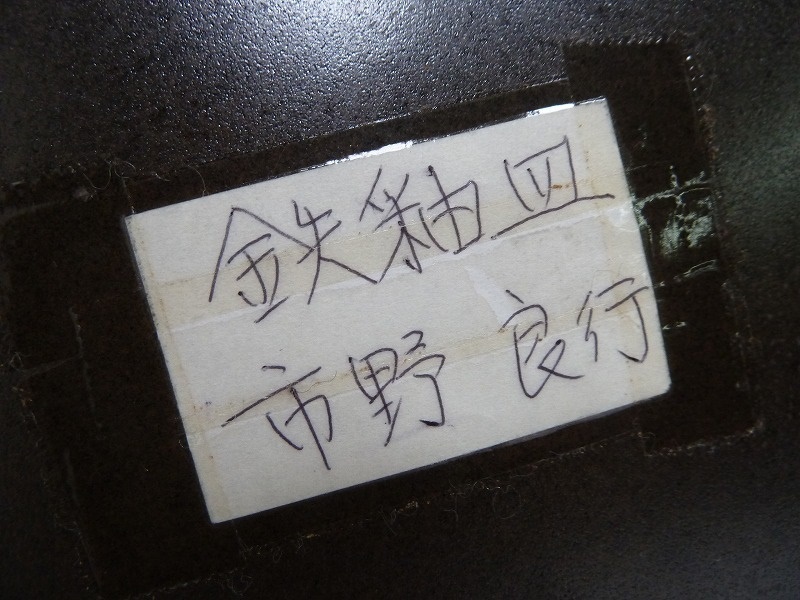 鉄釉皿
市野 良行